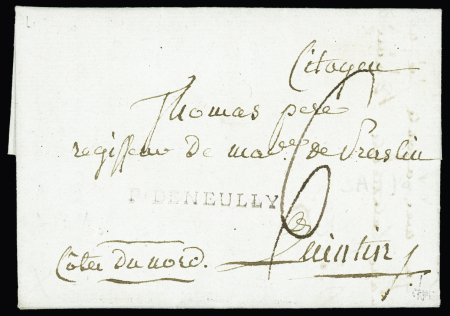 Citoyen
Thomas pere
regisseur de mad.e de Praslin
P. DENEULLY
6
a
Quintin
Côtes du nord.